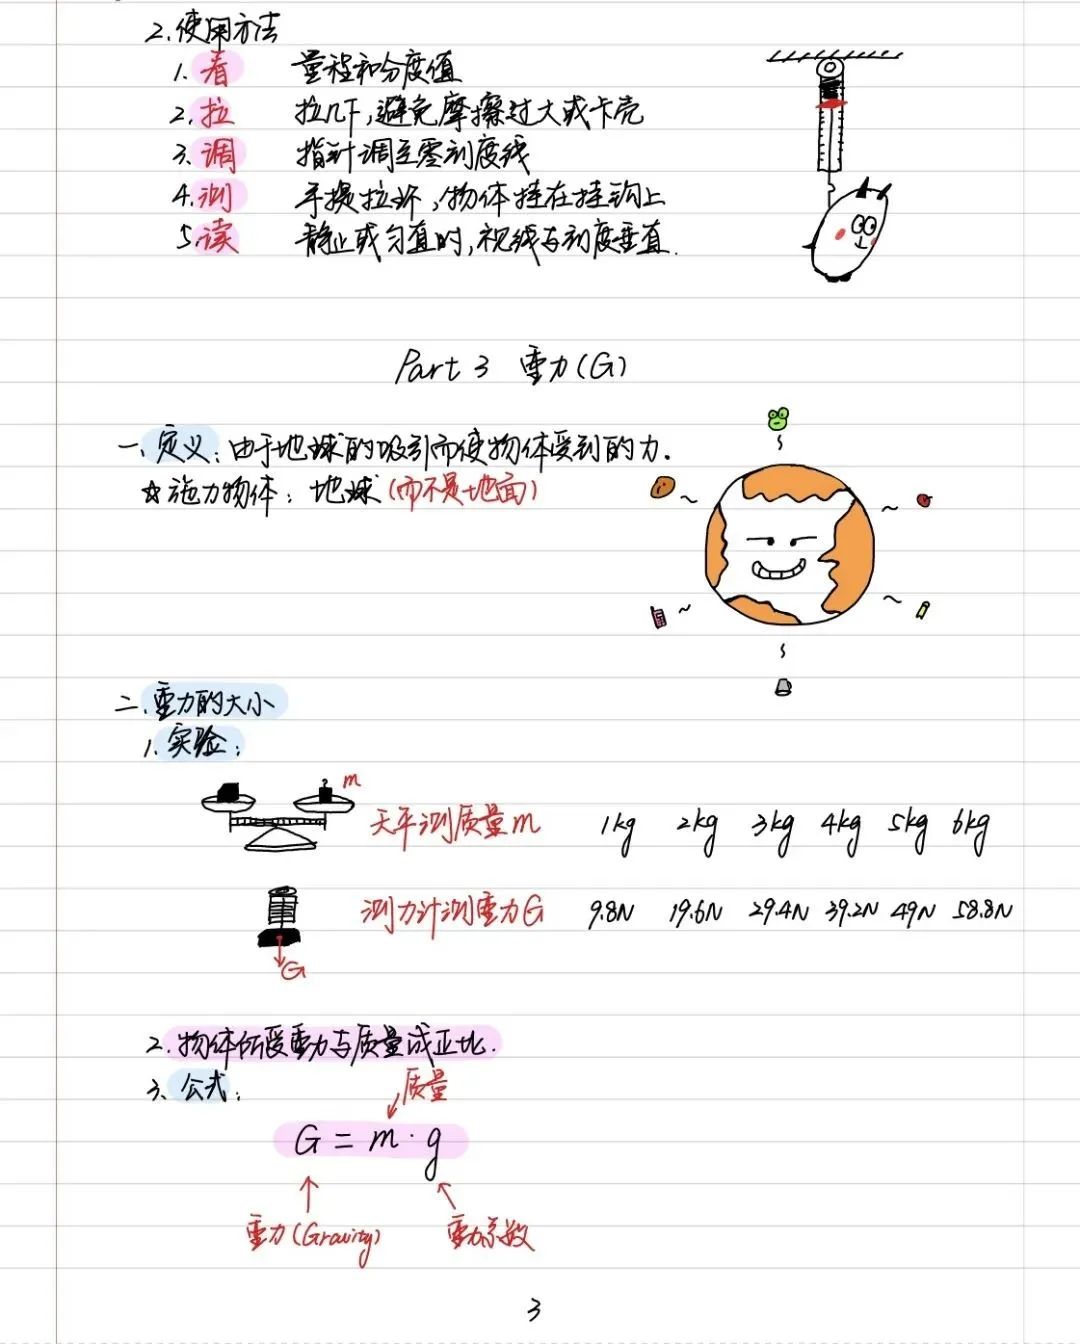 2.使用方法
1.看 量程和分度值
2.拉 拉几下,避免摩擦过大或卡壳
3.调 指针调至零刻度线
4.测 手提拉环,物体挂在挂钩上
5.读 静止或匀直时,视线与刻度垂直.
Part 3 重力(G)
一.定义:由于地球的吸引而使物体受到的力.
☆施力物体:地球(而不是地面)
二.重力的大小
1.实验:
m
天平测质量m 1kg 2kg 3kg 4kg 5kg 6kg
测力计测重力G 9.8N 19.6N 29.4N 39.2N 49N 58.8N
G
2.物体所受重力与质量成正比.
3.公式:
质量
G=m·g
重力(Gravity) 重力系数
3